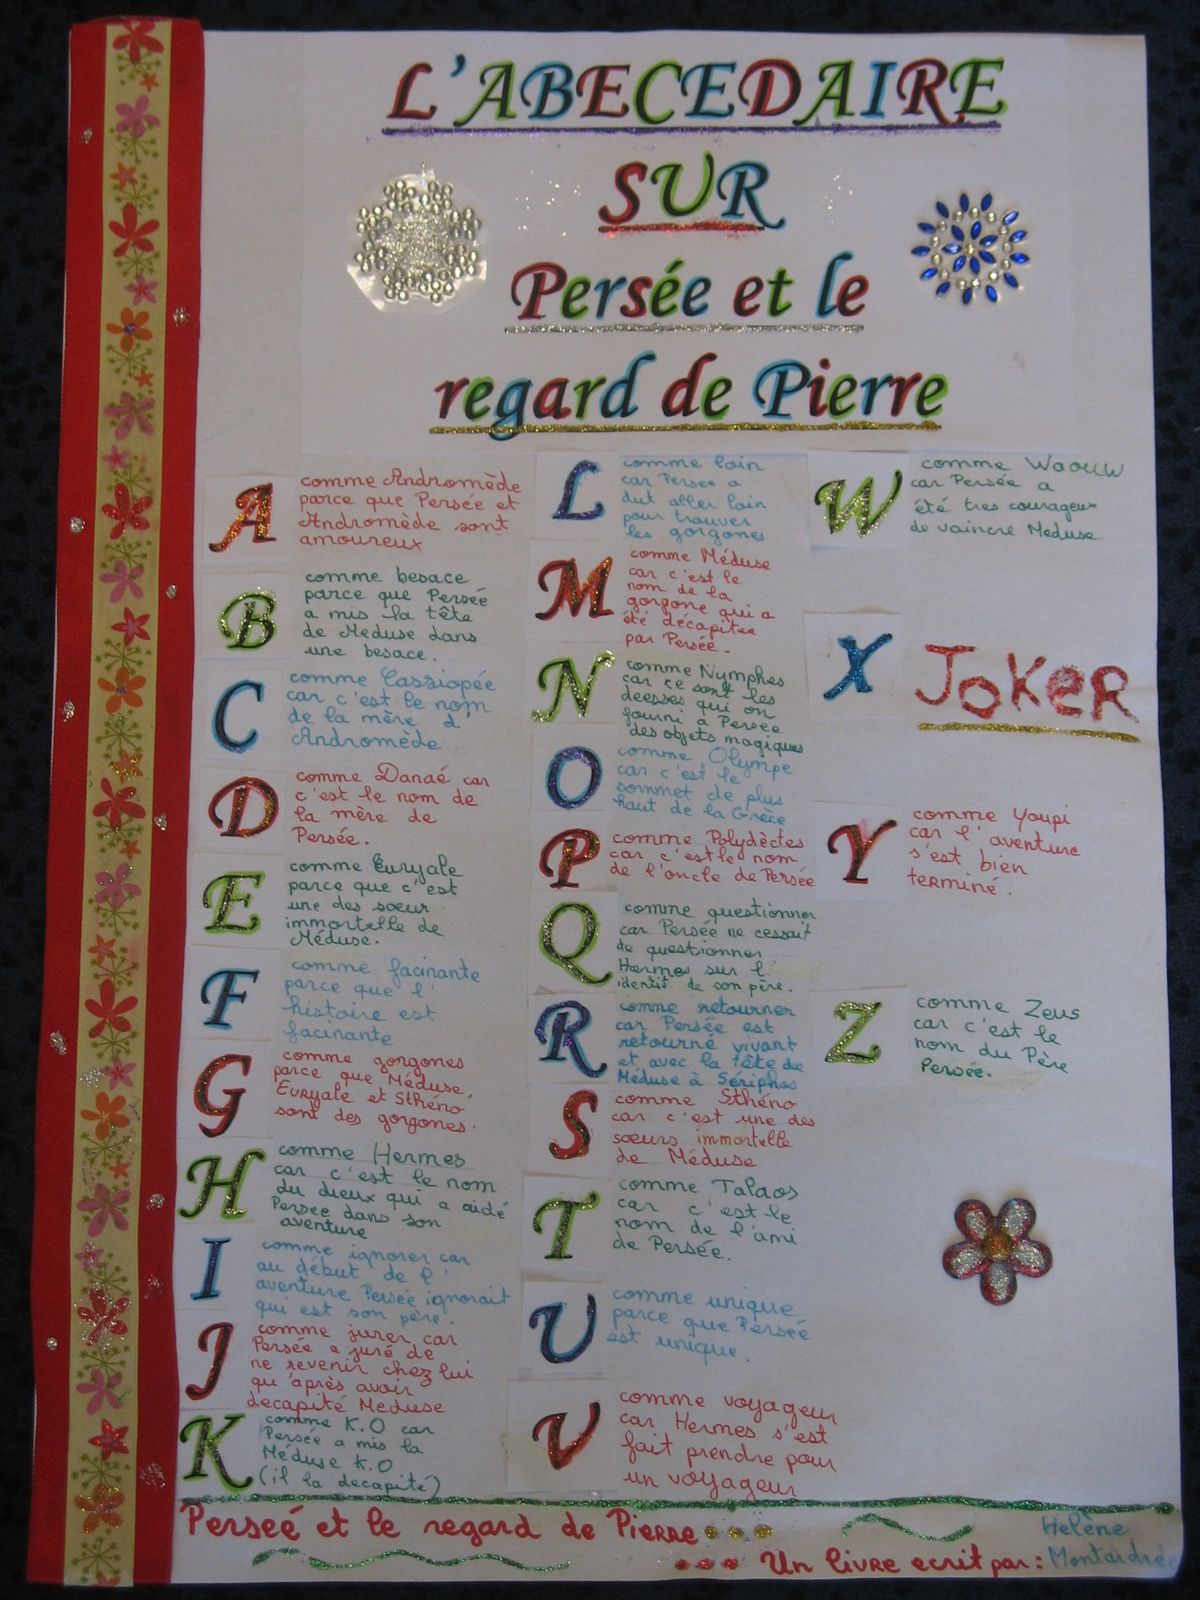 L'ABECEDAIRE
SUR
Persée et le
regard de Pierre
A
comme Andromède
parce que Persée et
Andromède sont
amoureux
B
comme besace
parce que Persée
a mis la tête
de Méduse dans
une besace.
C
comme Cassiopée
car c'est le nom
de la mère d'
Andromède
D
comme Danaé car
c'est le nom de
la mère de
Persée.
E
comme Euryale
parce que c'est
une des sœur
immortelle de
Méduse.
F
comme facinante
parce que l'
histoire est
facinante
G
comme gorgones
parce que Méduse,
Euryale et Sthéno
sont des gorgones.
H
comme Hermes
car c'est le nom
du dieux qui a aidé
Persee dans son
aventure
I
comme ignorer car
au début de l'
aventure Persée ignorait
qui est son père.
J
comme jurer car
Persée a juré de
ne revenir chez lui
qu'après avoir
decapité Meduse
K
comme K.O car
Persée a mis la
Méduse K.O
(il la decapité)
L
comme loin
car Persee a
dut aller loin
pour trouver
les gorgones
M
comme Méduse
car c'est le
nom de la
gorgone qui a
été décapitée
par Persée.
N
comme Nymphes
car ce sont les
deesses qui on
fourni a Persée
des objets magiques
O
comme Olympe
car c'est le
sommet de plus
haut de la Grèce
P
comme Polydèctes
car c'est le nom
de l'oncle de Persée
Q
comme questionner
car Persée ne cessait
de questionner
Hermes sur l'
identit de son père.
R
comme retourner
car Persée est
retourné vivant
et avec la tête de
Méduse à Sériphos
S
comme Sthéno
car c'est une des
sœurs immortelle
de Méduse
T
comme Talaos
car c'est le
nom de l'ami
de Persée.
U
comme unique
parce que Persée
est unique.
V
comme voyageur
car Hermes s'est
fait prendre pour
un voyageur
W
comme Waouw
car Persée a
été tres courageux
de vaincre Meduse
X
JOKER
Y
comme Youpi
car l'aventure
s'est bien
terminé.
Z
comme Zeus
car c'est le
nom du Père
Persée.
Perseé et le regard de Pierre
Un livre ecrit par: Helène
Montardre